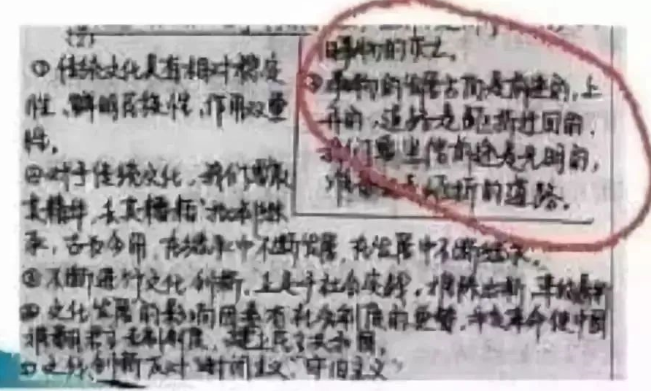 (2)
①传统文化具有相对稳定
性、鲜明民族性、作用双重
性。
②对于传统文化,我们要取
其精华,去其糟粕,批判继
承,古为今用,在继承中不断发展,在发展中不断继承。
③不断进行文化创新,立足于社会实践,推陈出新,革故鼎新
④文化发展的影响因素有社会制度的更替,
建立民主共和国。
文化创新反对"封闭主义""守旧主义"
旧事物的灭亡。
②事物的发展方向是前进的,上
升的,道路是曲折迂回的,
我们要坚信前途是光明的,
准备走曲折的道路。